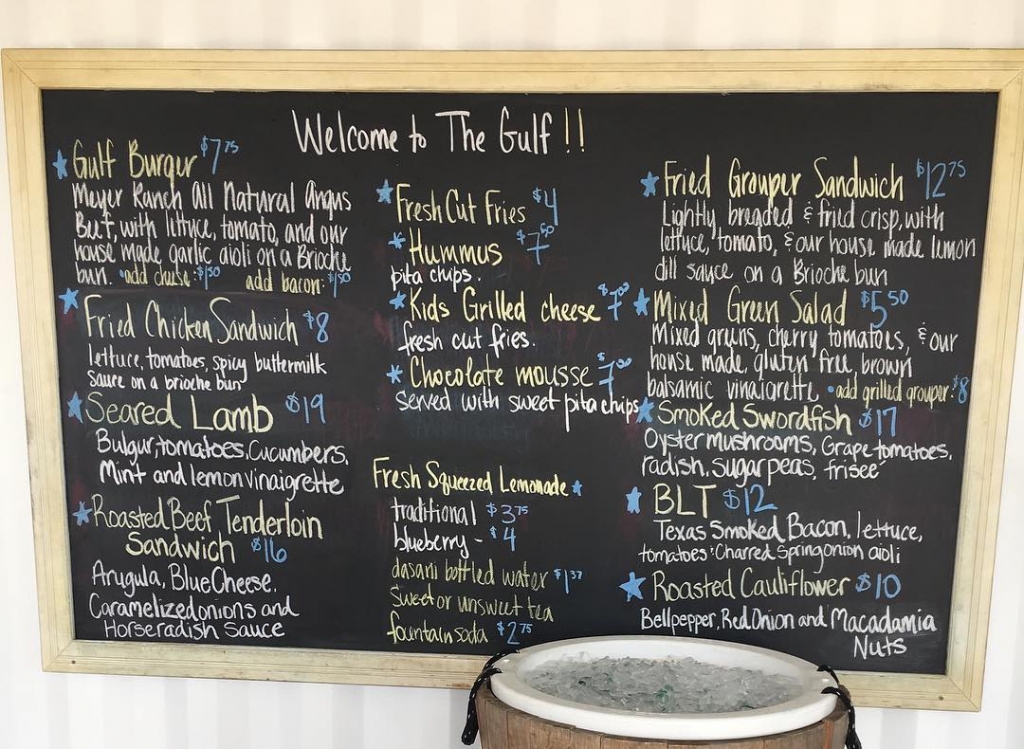 Welcome to The Gulf!!
Gulf Burger $7.75
Meyer Ranch All Natural Angus
Beef, with lettuce, tomato, and our
house made garlic aioli on a Brioche
bun. •add cheese: $1.50 add bacon: $1.50
Fried Chicken Sandwich $8
lettuce, tomatoes, spicy buttermilk
sauce on a brioche bun
Seared Lamb $19
Bulgur, tomatoes, Cucumbers,
Mint and lemon vinaigrette
Roasted Beef Tenderloin
Sandwich $16
Arugula, Blue Cheese,
Caramelized onions and
Horseradish Sauce
Fresh Cut Fries $4
Hummus $7.50
pita chips.
Kids Grilled cheese $7.00
fresh cut fries.
Chocolate mousse $7.00
Served with sweet pita chips
Fresh Squeezed Lemonade
traditional $3.75
blueberry - $4
dasani bottled water $1.37
sweet or unsweet tea
fountain soda $2.75
Fried Grouper Sandwich $12.75
Lightly breaded & fried crisp, with
lettuce, tomato, & our house made lemon
dill sauce on a Brioche bun
Mixed Green Salad $5.50
Mixed greens, cherry tomatoes, & our
house made, gluten free, brown
balsamic vinaigrette •add grilled grouper: $8
Smoked Swordfish $17
Oyster mushrooms, Grape tomatoes,
radish, sugar peas, friseé
BLT $12
Texas Smoked Bacon, lettuce,
tomatoes, Charred Spring onion aioli
Roasted Cauliflower $10
Bellpepper, Red Onion and Macadamia
Nuts